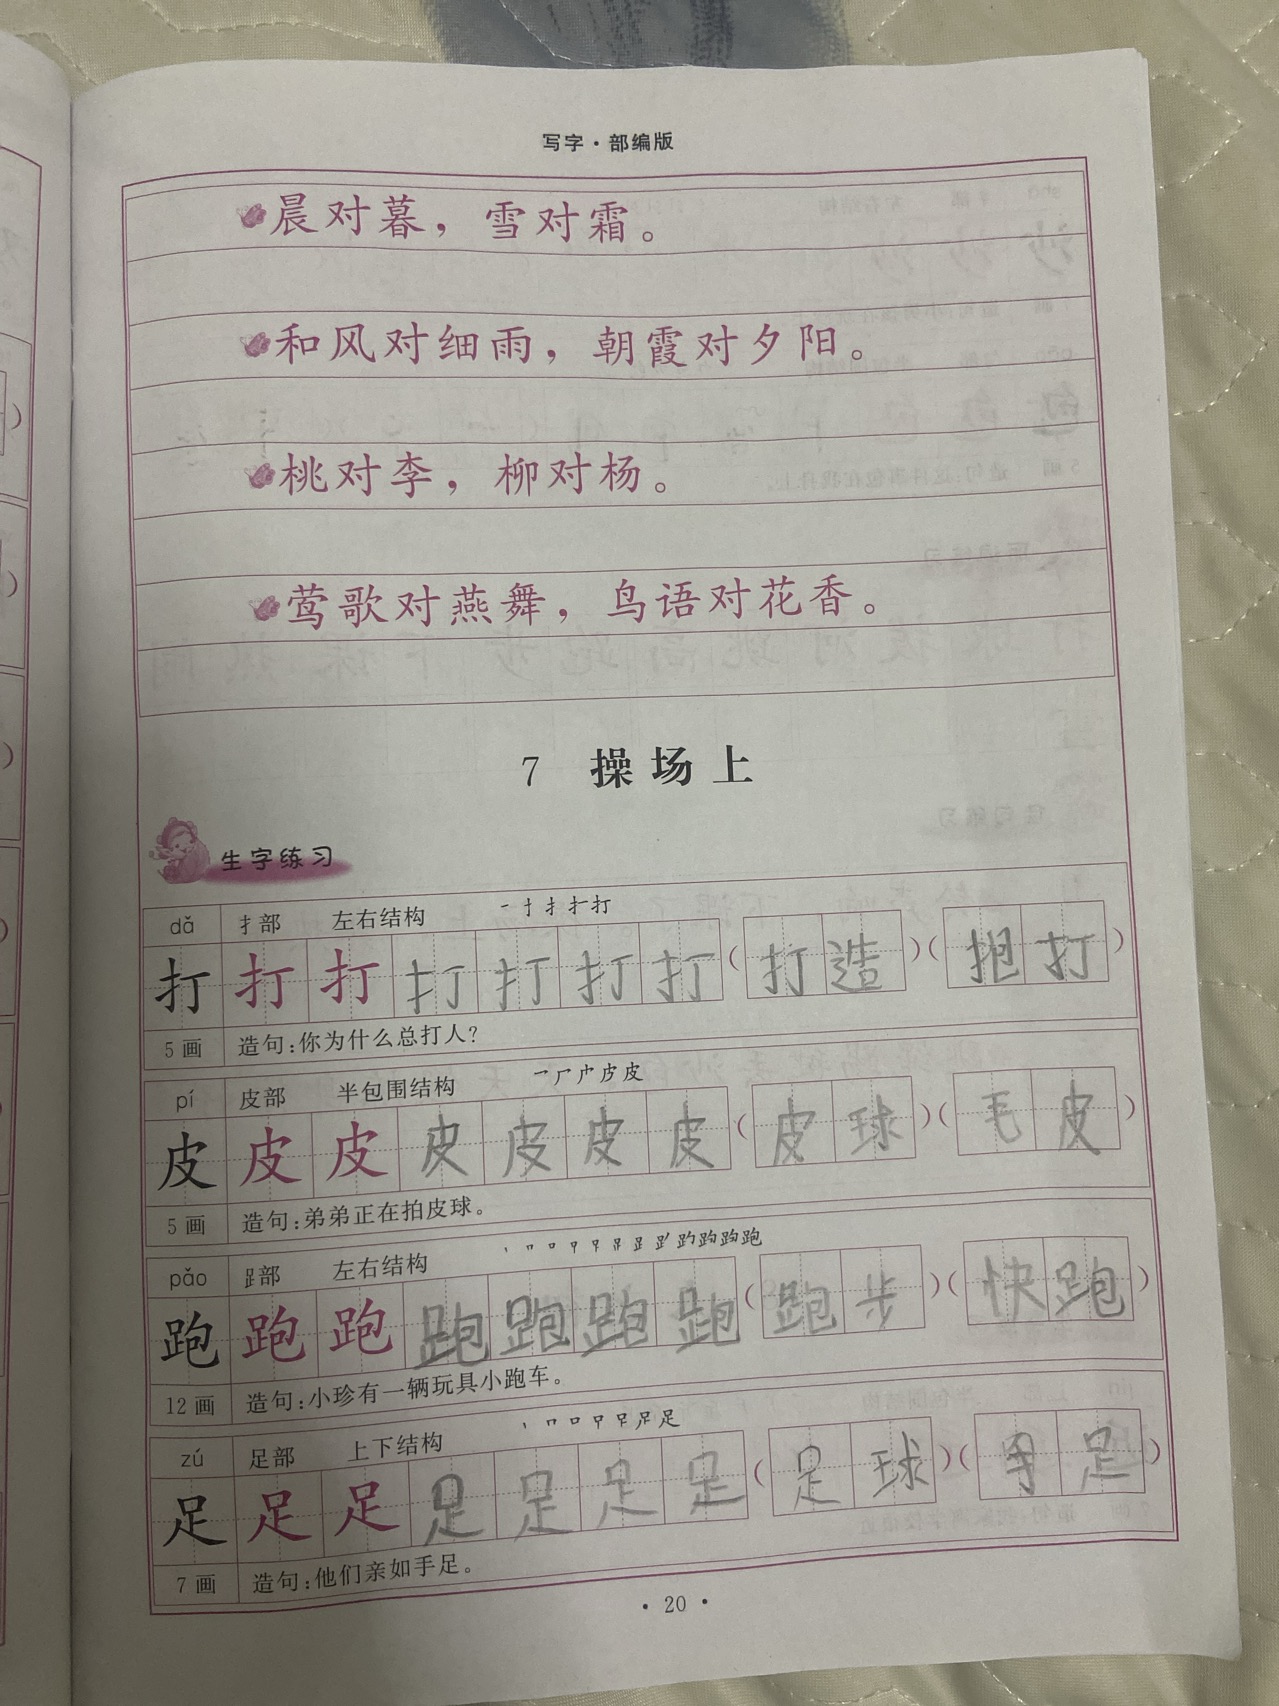 写字·部编版
晨对暮，雪对霜。
和风对细雨，朝霞对夕阳。
桃对李，柳对杨。
莺歌对燕舞，鸟语对花香。
7 操场上
生字练习
dǎ 扌部 左右结构
打 打 打 打 打 打 打 (打造)(抱打)
5画 造句:你为什么总打人?
pí 皮部 半包围结构
皮 皮 皮 皮 皮 皮 皮 (皮球)(毛皮)
5画 造句:弟弟正在拍皮球。
pǎo 𧾷部 左右结构
跑 跑 跑 跑 跑 跑 跑 (跑步)(快跑)
12画 造句:小珍有一辆玩具小跑车。
zú 足部 上下结构
足 足 足 足 足 足 足 (足球)(手足)
7画 造句:他们亲如手足。
·20·